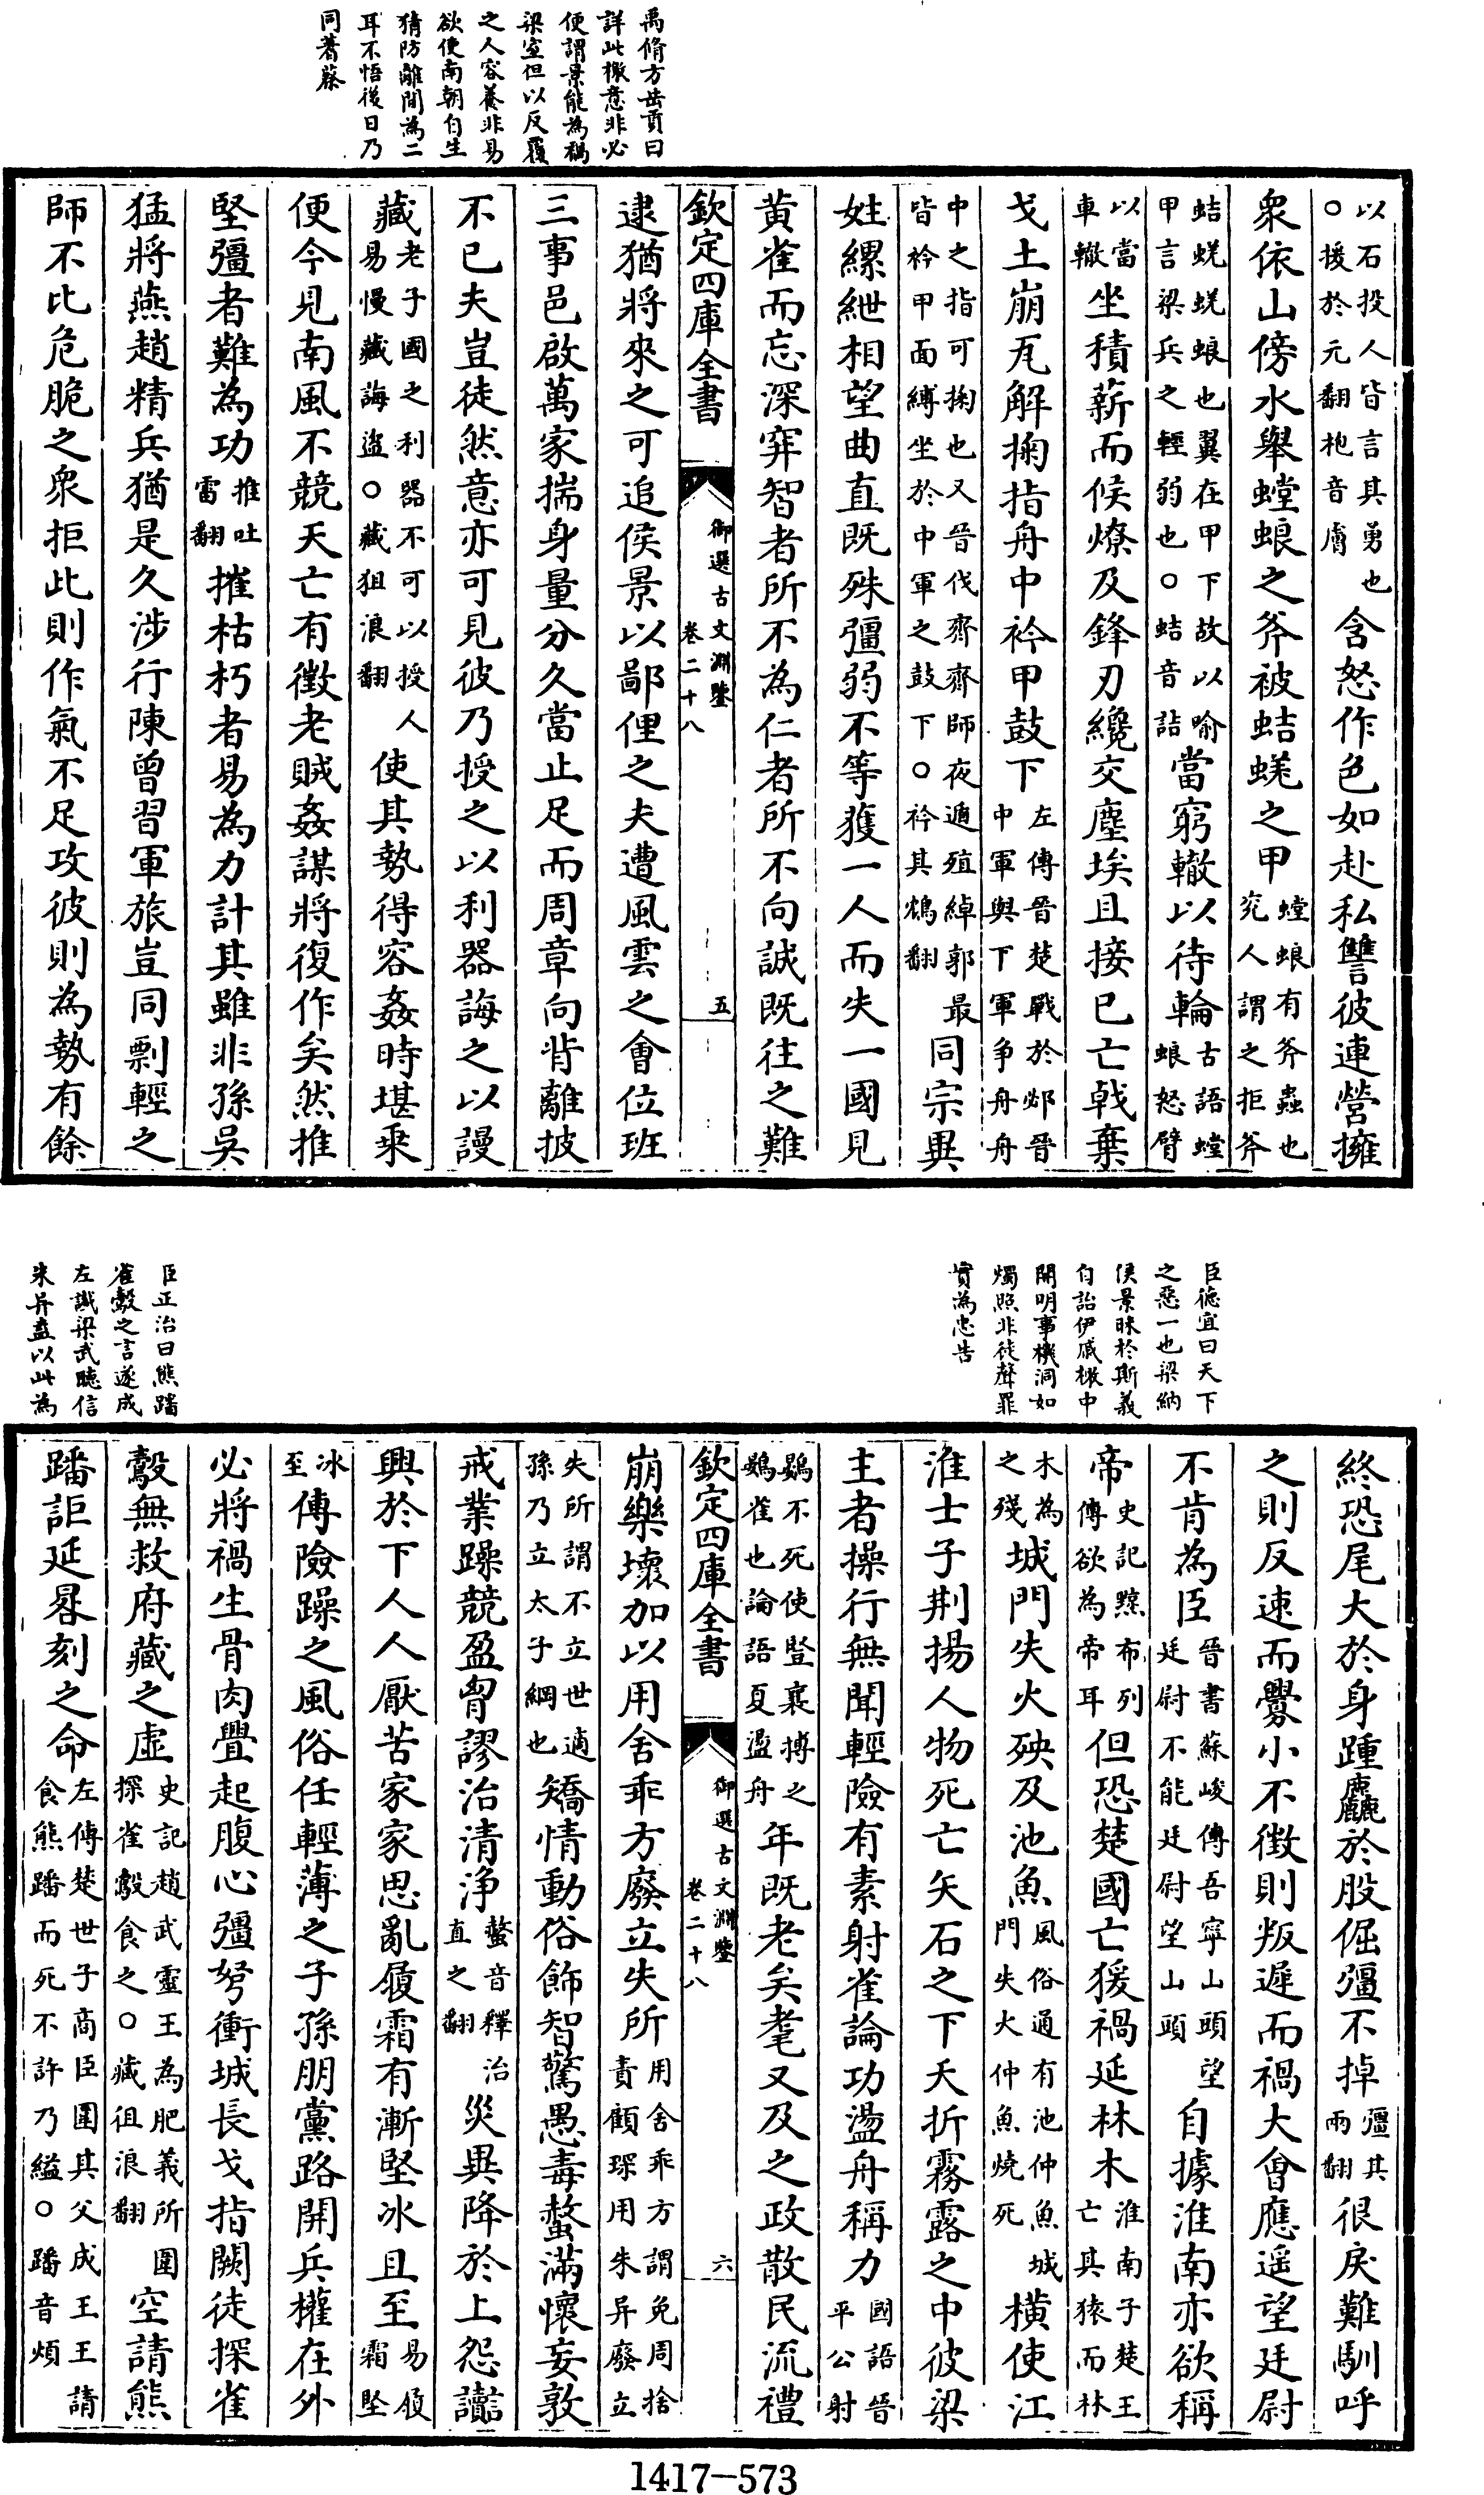 禹脩方岳貢曰
詳此檄意非必
便謂景能為禍
梁室但以反覆
之人容養非易
欲使南朝自生
猜防離間為二
耳不悟後日乃
同蓍蔡
以石投人皆言其勇也
○援於元翻枹音膚
含怒作色如赴私讐彼連營擁
衆依山傍水舉螳蜋之斧被蛣蜣之甲
螳蜋有斧蟲也
兖人謂之拒斧
蛣蜣蜣蜋也翼在甲下故以喻
甲言梁兵之輕弱也○蛣音詰
當窮轍以待輪
古語螳
蜋怒臂
以當
車轍
坐積薪而候燎及鋒刃纔交塵埃且接已亡戟棄
戈土崩瓦解掬指舟中衿甲鼓下
左傳晉楚戰於邲晉
中軍與下軍争舟舟
中之指可掬也又晉伐齊齊師夜遁殖綽郭最
皆衿甲面縛坐於中軍之鼓下○衿其鴆翻
同宗異
姓縲紲相望曲直既殊彊弱不等獲一人而失一國見
黄雀而忘深穽智者所不為仁者所不向誠既往之難
欽定四庫全書
御選古文淵鑒
卷二十八
五
逮猶將來之可追侯景以鄙俚之夫遭風雲之會位班
三事邑啟萬家揣身量分久當止足而周章向背離披
不已夫豈徒然意亦可見彼乃授之以利器誨之以謾
藏
老子國之利器不可以授人
易慢藏誨盜○藏狙浪翻
使其勢得容姦時堪乘
便今見南風不競天亡有徵老賊姦謀將復作矣然推
堅彊者難為功
推吐
雷翻
摧枯朽者易為力計其雖非孫吳
猛將燕趙精兵猶是久涉行陳曾習軍旅豈同剽輕之
師不比危脆之衆拒此則作氣不足攻彼則為勢有餘
臣德宜曰天下
之惡一也梁納
侯景昧於斯義
自詒伊慼檄中
開明事機洞如
燭照非徒聲罪
實為忠告
臣正治曰熊蹯
雀鷇之言遂成
左讖梁武聽信
朱异盖以此為
終恐尾大於身踵麤於股倔彊不掉
彊其
兩翻
很戾難馴呼
之則反速而釁小不徵則叛遲而禍大會應遥望廷尉
不肯為臣
晉書蘇峻傳吾寧山頭望
廷尉不能廷尉望山頭
自據淮南亦欲稱
帝
史記黥布列
傳欲為帝耳
但恐楚國亡猨禍延林木
淮南子楚王
亡其猿而林
木為
之殘
城門失火殃及池魚
風俗通有池仲魚城
門失火仲魚燒死
横使江
淮士子荆揚人物死亡矢石之下夭折霧露之中彼梁
主者操行無聞輕險有素射雀論功盪舟稱力
國語晉
平公射
鷃不死使豎襄搏之
鷃雀也論語夏盪舟
年既老矣耄又及之政散民流禮
欽定四庫全書
御選古文淵鑒
卷二十八
六
崩樂壞加以用舍乖方廢立失所
用舍乖方謂免周捨
責顧琛用朱异廢立
失所謂不立世適
孫乃立太子綱也
矯情動俗飾智驚愚毒螫滿懷妄敦
戒業躁競盈胷謬治清淨
螫音釋治
直之翻
災異降於上怨讟
興於下人人厭苦家家思亂履霜有漸堅冰且至
易履
霜堅
冰
至
傳險躁之風俗任輕薄之子孫朋黨路開兵權在外
必將禍生骨肉疊起腹心彊弩衝城長戈指闕徒探雀
鷇無救府藏之虚
史記趙武靈王為肥義所圍
探雀鷇食之○藏徂浪翻
空請熊
蹯詎延晷刻之命
左傳楚世子商臣圍其父成王王請
食熊蹯而死不許乃縊○蹯音煩
1417—573